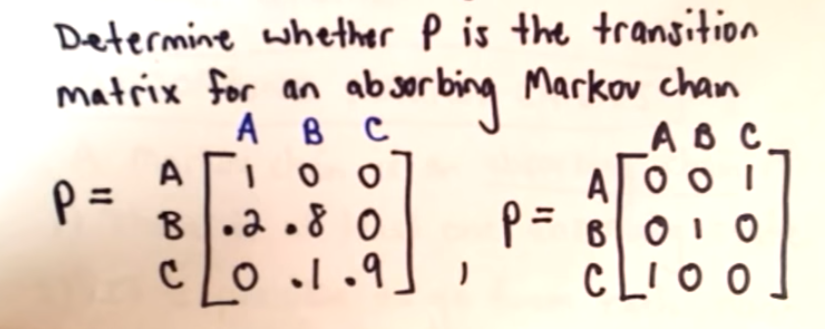 Determine whether P is the transition
matrix for an absorbing Markov chan
A B C A B C
P = A [ 1 0 0 ] A [ 0 0 1 ]
B [ .2 .8 0 ] P = B [ 0 1 0 ]
C [ 0 .1 .9 ] , C [ 1 0 0 ]